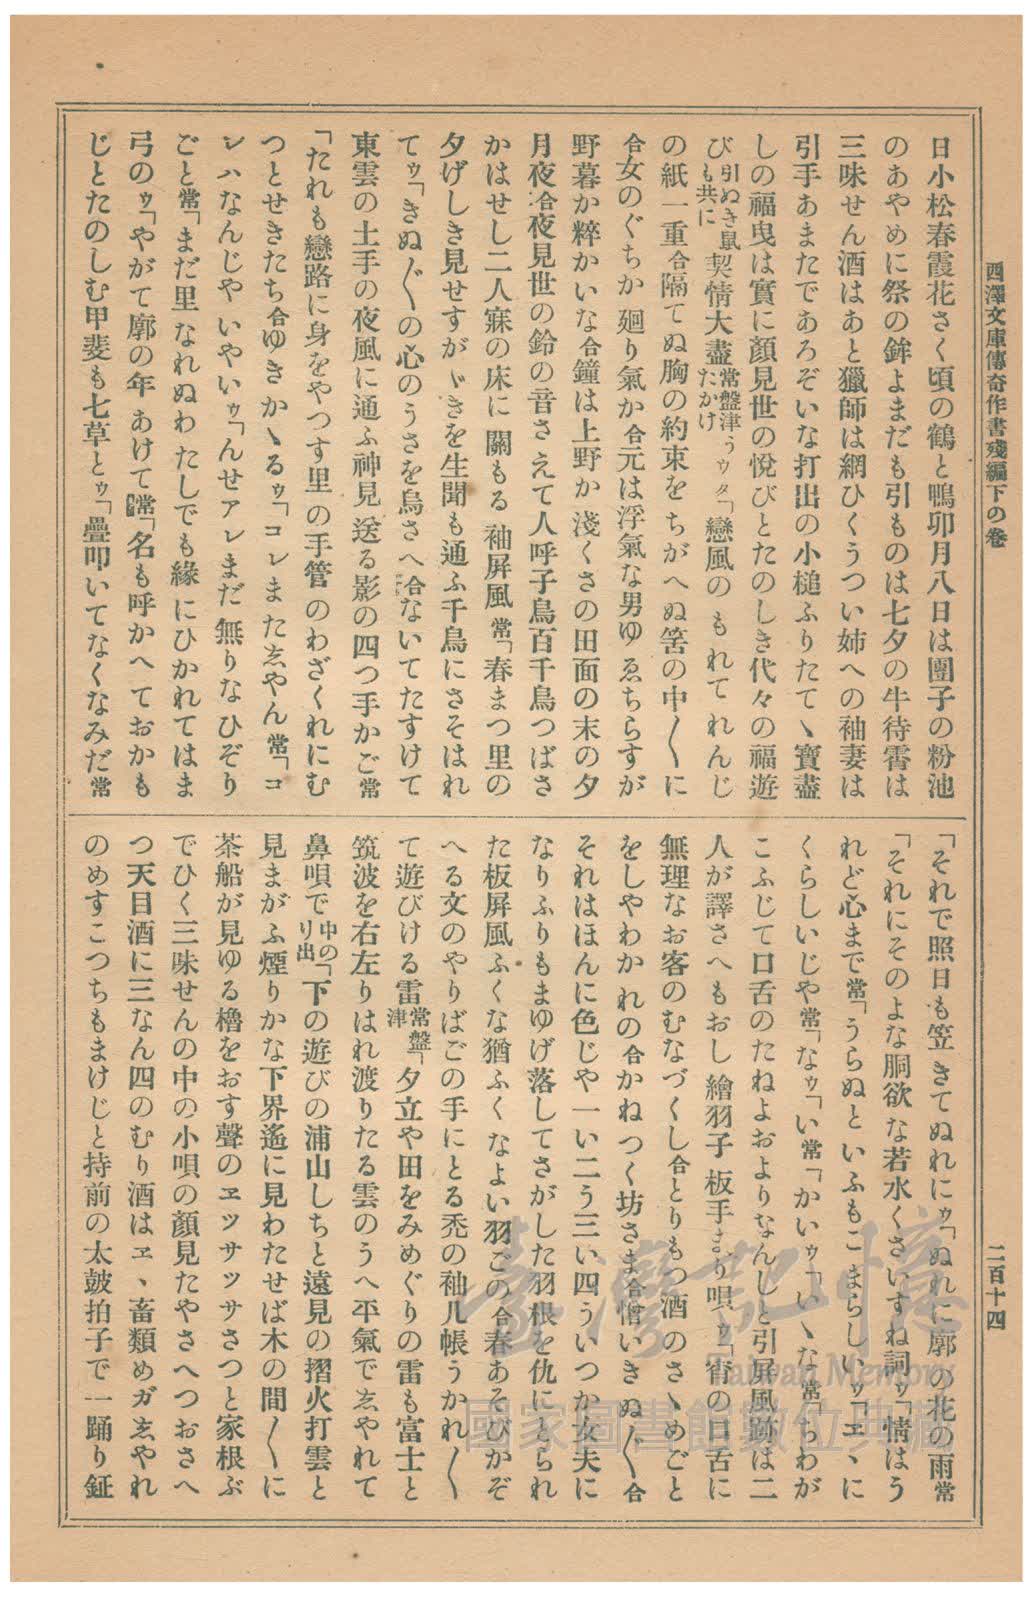 西澤文庫傳奇作書殘編下の卷
二百十四
日小松春霞花さく頃の鶴と鴨卯月八日は團子の粉池
のあやめに祭の鉾よまだも引ものは七夕の牛待霄は
三味せん酒はあと獵師は網ひくうつい姉への袖妻は
引手あまたであろぞいな打出の小槌ふりたてゝ寶盡
しの福曳は實に顏見世の悅びとたのしき代々の福遊
び引ぬき鼠も共に契情大盡常盤津たかけうゥタ「戀風の もれて れんじ
の紙一重合隔てぬ胸の約束をちがへぬ筈の中〱に
合女のぐちか廻り氣か合元は浮氣な男ゆゑちらすが
野暮か粹かいな合鐘は上野か淺くさの田面の末の夕
月夜合夜見世の鈴の音さえて人呼子鳥百千鳥つばさ
かはせし二人寐の床に關もる 袖屛風常「春まつ里の
夕げしき見せすがゞきを生聞も通ふ千鳥にさそはれ
てゥ「きぬ〲の心のうさを烏さへ合ないてたすけて
東雲の土手の夜風に通ふ神見送る影の四つ手かご常
「たれも戀路に身をやつす里の手管のわざくれにむ
つとせきたち合ゆきかゝるゥ「コレまた〓やん常「コ
レハなんじや いやいゥ「んせアレまだ無りなひぞり
ごと常「まだ里なれぬわたしでも緣にひかれてはま
弓のゥ「やがて廓の年あけて常「名も呼かへておかも
じとたのしむ甲斐も七草とゥ「疊叩いてなくなみだ常
「それで照日も笠きてぬれにゥ「ぬれに廓の花の雨常
「それにそのよな胴欲な若水くさいすね詞ゥ「情はう
れど心まで常「うらぬといふもこまらしいゥ「ヱヽに
くらしいじや常「なゥ「い常「かいゥ「いゝな常「ちわが
こふじて口舌のたねよおよりなんしと引屛風跡は二
人が譯さへもおし繪羽子板手まり唄ゥ「宵の口舌に
無理なお客のむなづくし合とりもつ酒のさゝめごと
をしやわかれの合かねつく坊さま合憎いきぬ〲合
それはほんに色じや一い二う三い四ういつか女夫に
なりふりもまゆげ落してさがした羽根を仇にとられ
た板屛風ふくな猶ふくなよい羽ごの合春あそびかぞ
へる文のやりばごの手にとる禿の袖几帳うかれ〱
て遊びける雷常盤津「夕立や田をみめぐりの雷も富士と
筑波を右左りはれ渡りたる雲のうへ平氣で〓やれて
鼻唄で中のり出「下の遊びの浦山しちと遠見の摺火打雲と
見まがふ煙りかな下界遙に見わたせば木の間〱に
茶船が見ゆる櫓をおす聲のヱッサッサさつと家根ぶ
でひく三味せんの中の小唄の顏見たやさへつおさへ
つ天目酒に三なん四のむり酒はヱヽ畜類めガ〓やれ
のめすこつちもまけじと持前の太皷拍子で一踊り鉦
臺灣記憶
Taiwan Memory
國家圖書館數位典藏